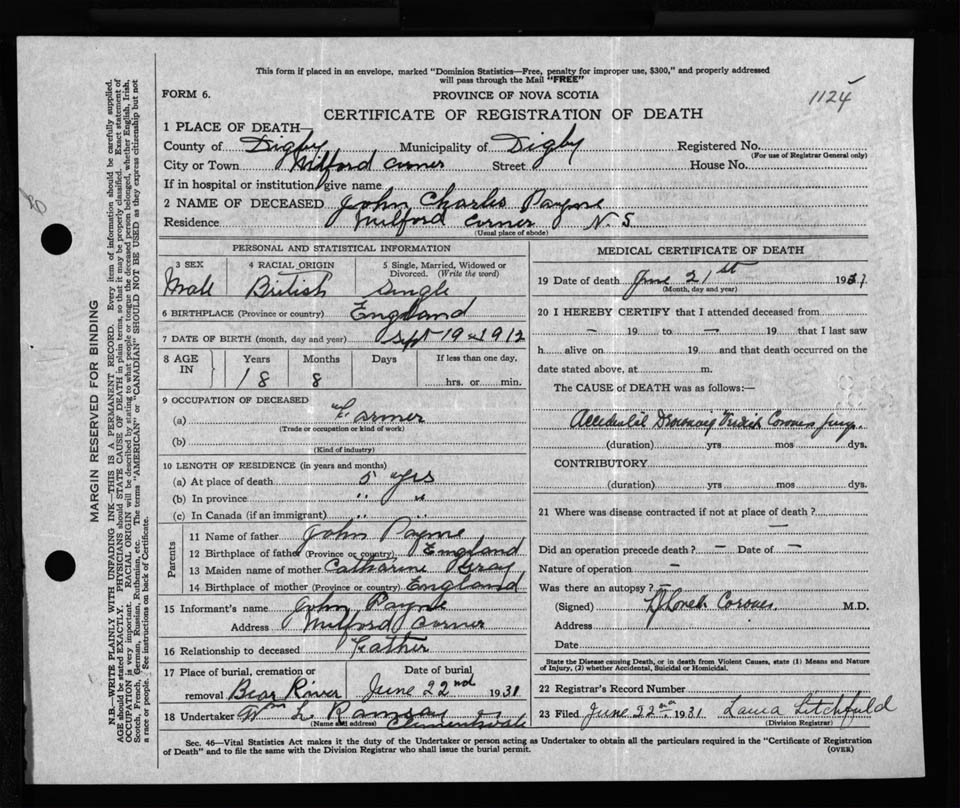 This form if placed in an envelope, marked "Dominion Statistics—Free, penalty for improper use, $300," and properly addressed
will pass through the Mail "FREE"
FORM 6.
PROVINCE OF NOVA SCOTIA
1124
CERTIFICATE OF REGISTRATION OF DEATH
1 PLACE OF DEATH—
County of Digby Municipality of Digby Registered No.
(For use of Registrar General only)
City or Town Milford Corner Street House No.
If in hospital or institution, give name
2 NAME OF DECEASED John Charles Payne
Residence Milford Corner N. S
(Usual place of abode)
PERSONAL AND STATISTICAL INFORMATION
3 SEX 4 RACIAL ORIGIN 5 Single, Married, Widowed or
Divorced. (Write the word)
Male British Single
6 BIRTHPLACE (Province or country) England
7 DATE OF BIRTH (month, day and year) Sept 19 1912
8 AGE IN Years Months Days If less than one day,
18 8 hrs. or min.
9 OCCUPATION OF DECEASED
(a) Farmer
(Trade or occupation or kind of work)
(b)
(Kind of industry)
10 LENGTH OF RESIDENCE (in years and months)
(a) At place of death 5 yrs
(b) In province " "
(c) In Canada (if an immigrant) " "
Parents
11 Name of father John Payne
12 Birthplace of father (Province or country) England
13 Maiden name of mother Catharine Gray
14 Birthplace of mother (Province or country) England
15 Informant's name John Payne
Address Milford Corner
16 Relationship to deceased Father
17 Place of burial, cremation or Date of burial
removal Bear River June 22nd 1931
18 Undertaker Wm L Ramsay
(Name and address)
MEDICAL CERTIFICATE OF DEATH
19 Date of death June 21st 1931
(Month, day and year)
20 I HEREBY CERTIFY that I attended deceased from
— 19 to — 19 that I last saw
h alive on 19 and that death occurred on the
date stated above, at m.
The CAUSE of DEATH was as follows:—
Accidental Drowning Coroners Jury.
(duration) yrs mos dys.
CONTRIBUTORY
(duration) yrs mos dys.
21 Where was disease contracted if not at place of death?
—
Did an operation precede death? — Date of —
Nature of operation —
Was there an autopsy? —
(Signed) Coroner. M.D.
Address
Date
State the Disease causing Death, or in death from Violent Causes, state (1) Means and Nature
of Injury, (2) whether Accidental, Suicidal or Homicidal.
22 Registrar's Record Number
23 Filed June 22nd 1931 Laura Litchfield
(Division Registrar)
Sec. 46—Vital Statistics Act makes it the duty of the Undertaker or person acting as Undertaker to obtain all the particulars required in the "Certificate of Registration
of Death" and to file the same with the Division Registrar who shall issue the burial permit.
(OVER)
MARGIN RESERVED FOR BINDING
N.B.—WRITE PLAINLY WITH UNFADING INK—THIS IS A PERMANENT RECORD. Every item of information should be carefully supplied.
AGE should be stated EXACTLY. PHYSICIANS should STATE CAUSE OF DEATH in plain terms, so that it may be properly classified. Exact statement of
OCCUPATION is very important. RACIAL ORIGIN will be described by stating to what people or tongue the deceased person belonged, whether English, Irish,
Scotch, French, German, Russian, Ruthenian, etc. The terms "AMERICAN" or "CANADIAN" SHOULD NOT BE USED as they express citizenship but not
a race or people. See instructions on back of Certificate.